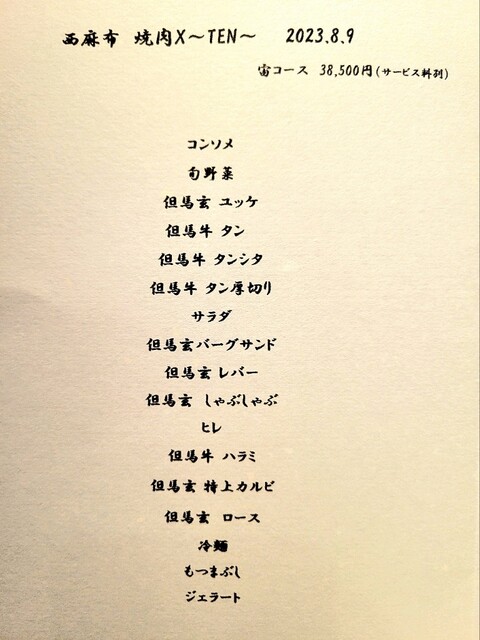 西麻布 焼肉X～TEN～ 2023.8.9
宙コース 38,500円(サービス料別)
コンソメ
旬野菜
但馬玄 ユッケ
但馬牛 タン
但馬牛 タンシタ
但馬牛 タン厚切り
サラダ
但馬玄バーグサンド
但馬玄 レバー
但馬玄 しゃぶしゃぶ
ヒレ
但馬牛 ハラミ
但馬玄 特上カルビ
但馬玄 ロース
冷麺
もつまぶし
ジェラート